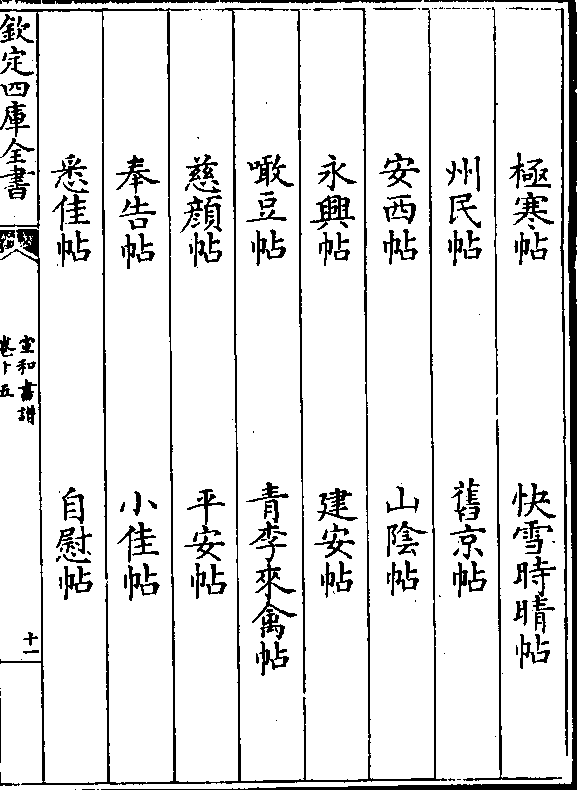 極寒帖 快雪時晴帖
州民帖 舊京帖
安西帖 山陰帖
永興帖 建安帖
噉豆帖 青李來禽帖
慈顔帖 平安帖
奉告帖 小佳帖
悉佳帖 自慰帖
欽定四庫全書
宣和書譜
卷十五
十一